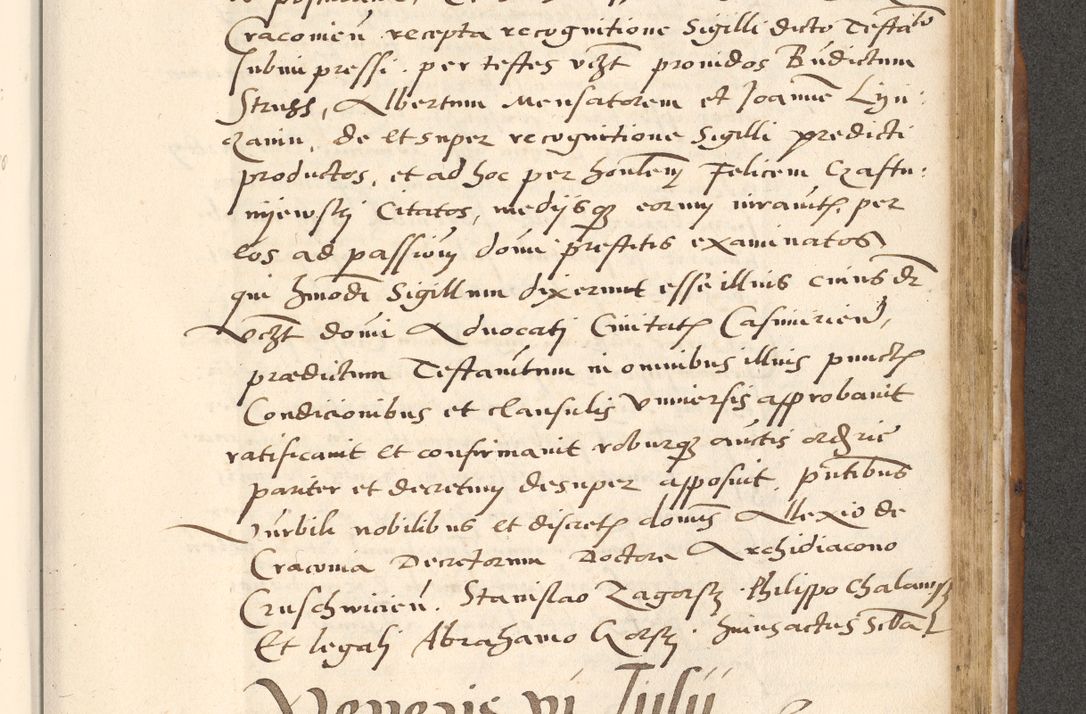 Cracovień recepta recognitione Sigilli dicto Testāto
subimpressi. per testes vczt providos Būdictum
Struss, Albertum Mensatorem et Joannē Lyn:
czanin, de et super recognitione Sigilli predicti
productos, et ad hoc per honlem Felicem Czaftu:
nijewskj Citatos, medysqz eorum iuraūtis, per
eos ad passium domi prestitis examinatos
qui hmodi Sigillum dixerunt esse illius cuius dr
vczt domi Advocatj Civitatis Casimirień,
prædictum Testaūtum in omnibus illius punctis
Condicionibus et clausulis vniversis approbavit
ratificavit et confirmavit roburqz auctis ordrie
pariter et decretum desuper apposuit, pntibus
Vnrbili nobilibus et discretis domīs Allexio de
Cracovia Decretorum Doctore Archidiacono
Cruschwicień. Stanislao Zagorskj. Philippo Chalanskj
Et legalj Abrahamo Gorskj. huius actus Scbā
Veneris vi Julij